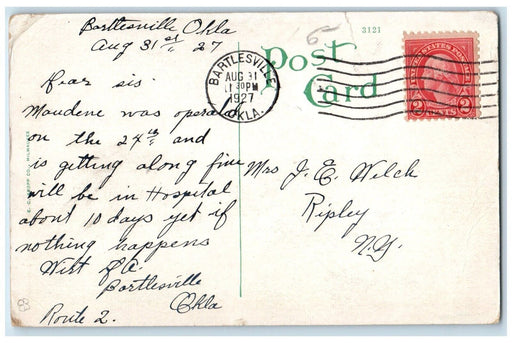 Bartlesville Okla
Aug 31st 27
Dear sis.
Maudene was opera
on the 27th and
is getting along fine
will be in Hospital
about 10 days yet if
nothing happens
Bartlesville
Okla
Route 2.
3121
Post
Card
BARTLESVILLE
AUG 31
30PM
1927
OKLA.
UNITED STATES POSTAGE
2 CENTS 2
Mrs J. E. Welch
Ripley
N.Y.